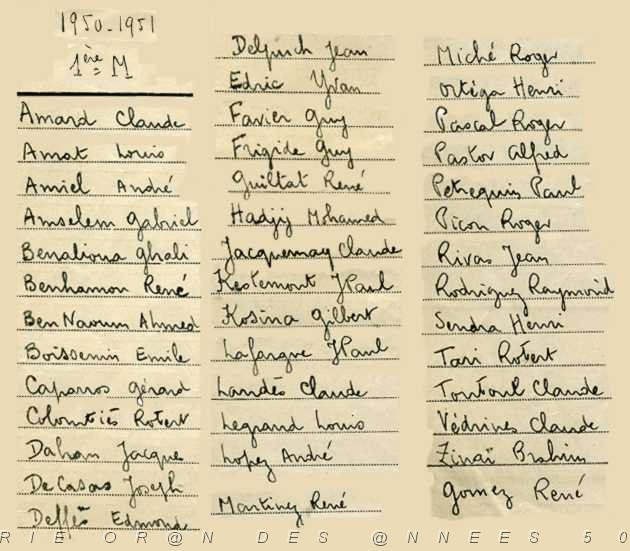 1950-1951
1ère M
Amard Claude
Amat Louis
Amiel André
Amselem Gabriel
Benalioua Ghali
Benhamou René
Ben Naoum Ahmed
Boissenin Emile
Caparros Gérard
Colombiès Robert
Dahan Jacques
De Casas Joseph
Deffès Edmond
Delpuch Jean
Edric Yvan
Favier Guy
Frigide Guy
Guiltat René
Hadjij Mohamed
Jacquemay Claude
Kestemont JPaul
Kosina Gilbert
Lafargue JPaul
Landès Claude
Legrand Louis
Lopez André
Martinez René
Miché Roger
Ortéga Henri
Pascal Roger
Pastor Alfred
Petrequin Paul
Picon Roger
Rivas Jean
Rodriguez Raymond
Sendra Henri
Tari Robert
Claude
Védrines Claude
Zinaï Brahim
Gomez René
RIE OR@N DES @NNEES 50